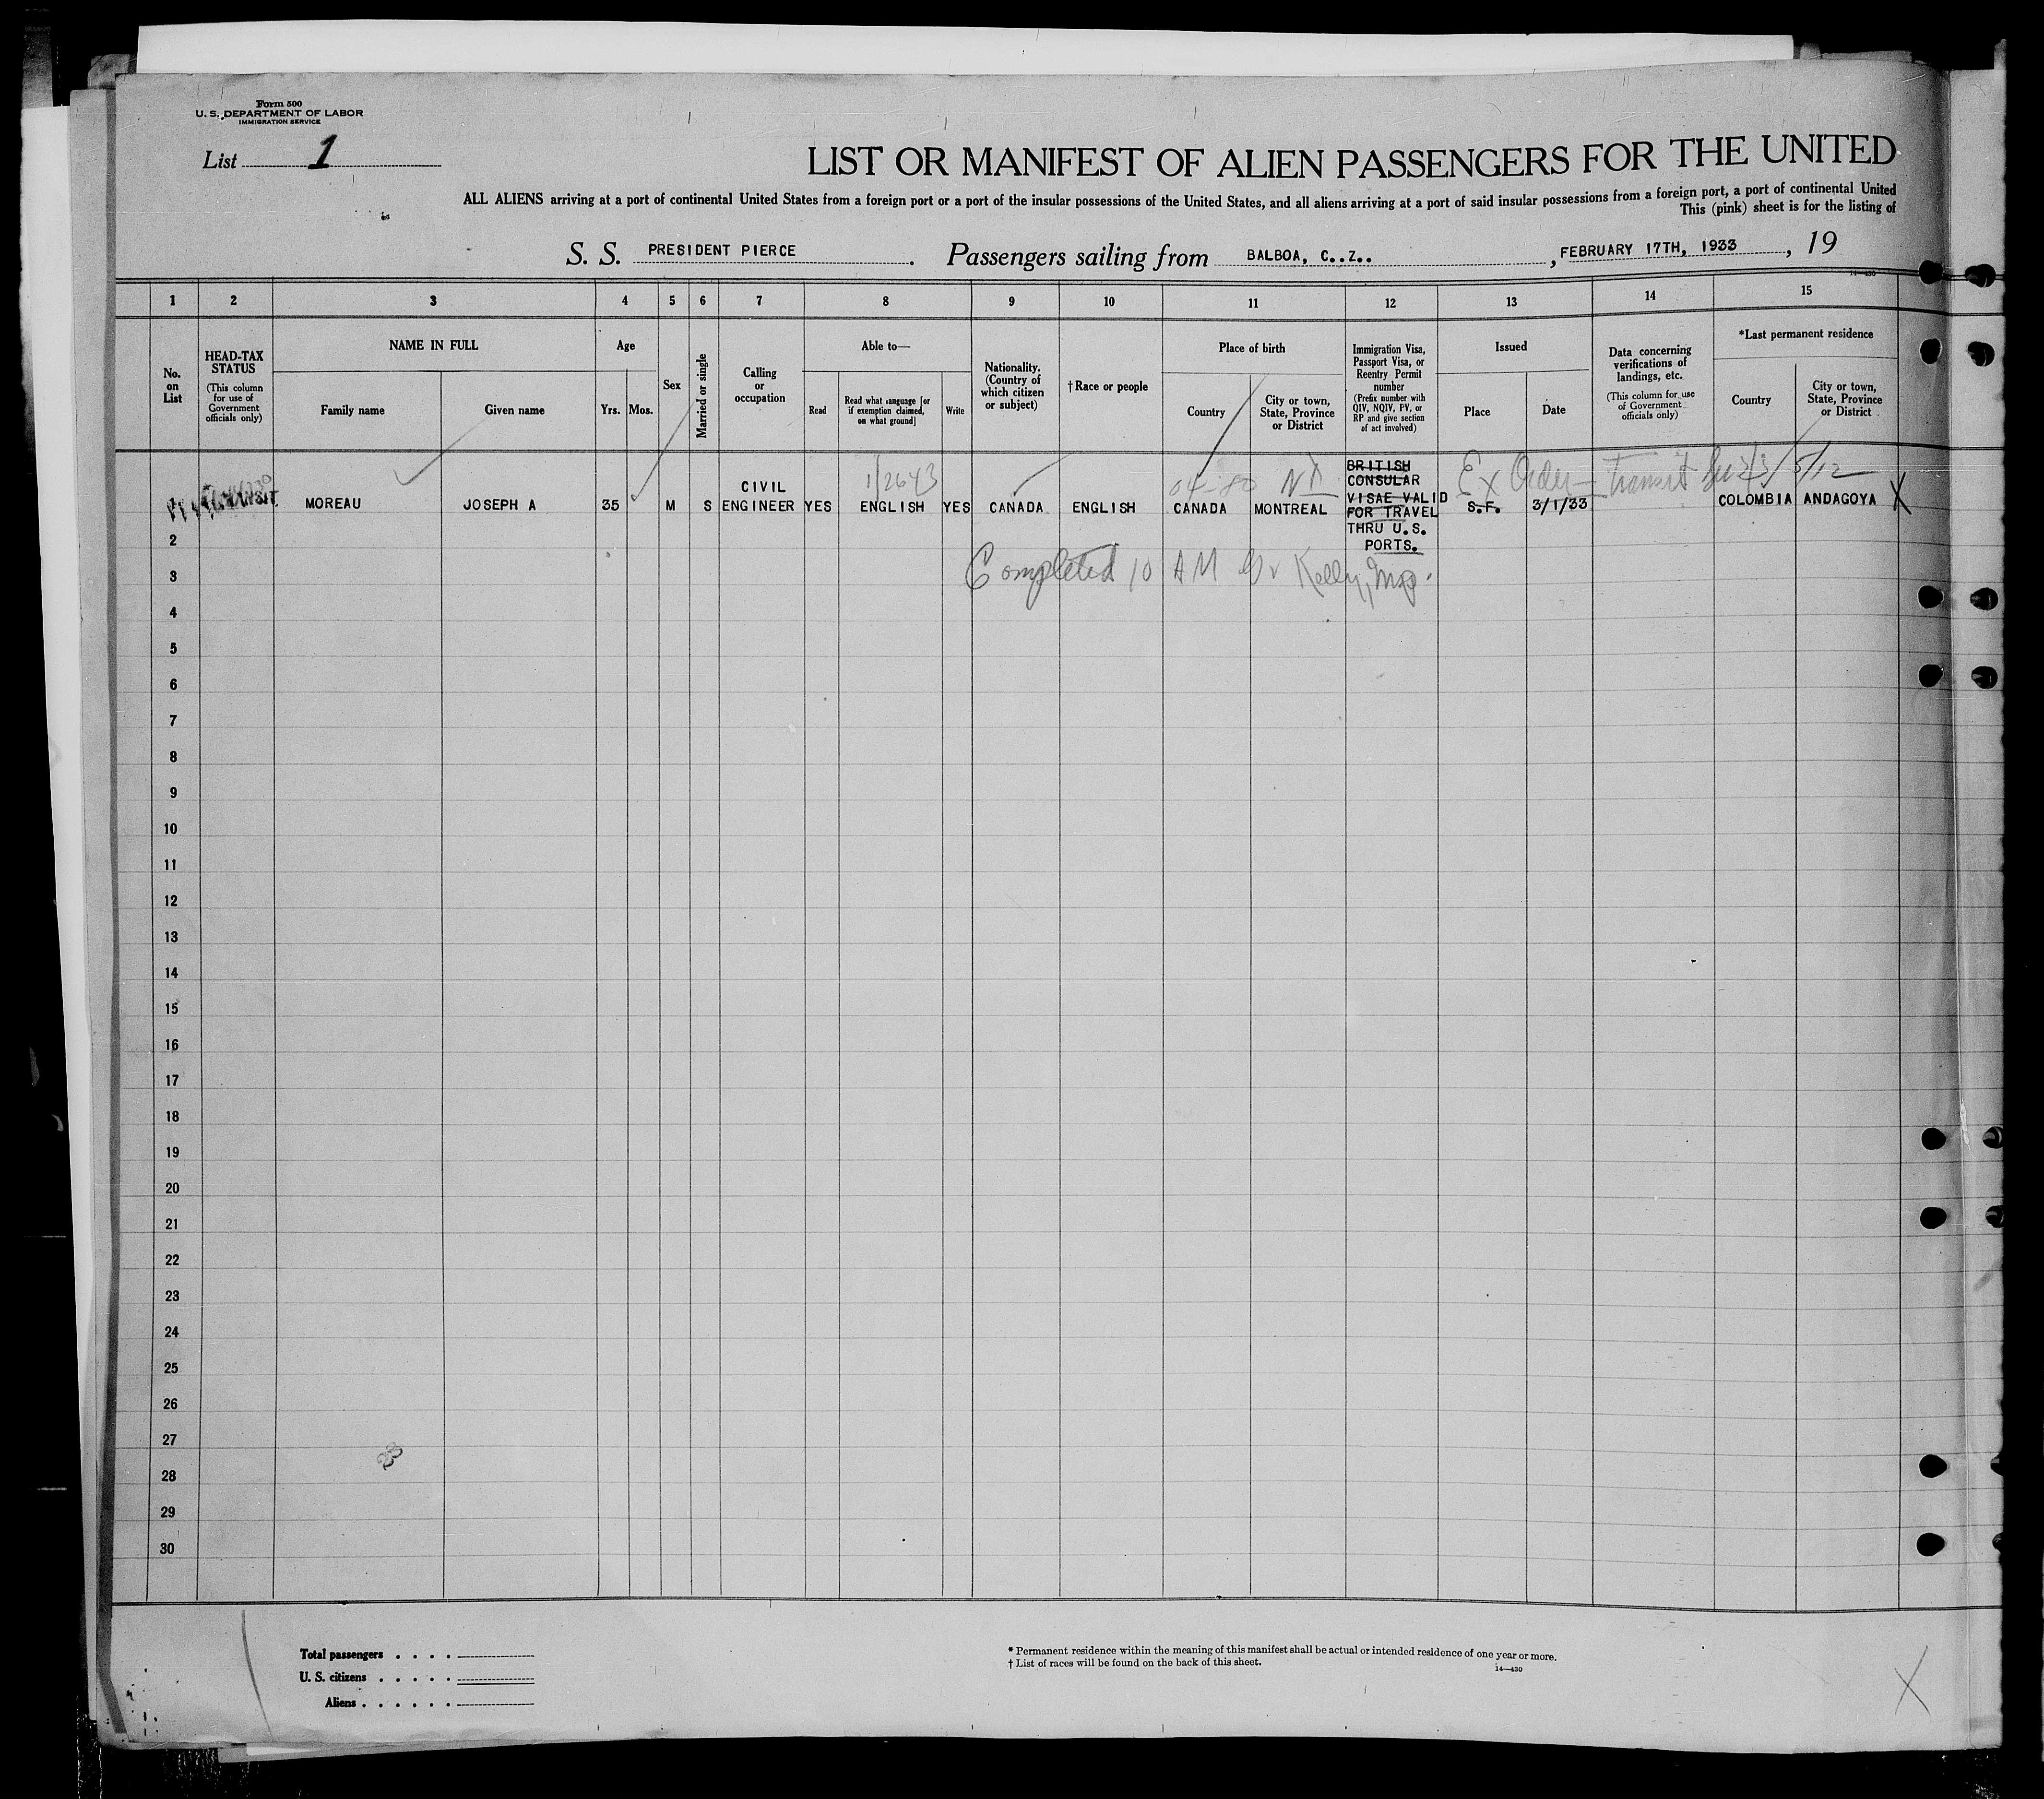 Form 500
U. S. DEPARTMENT OF LABOR
IMMIGRATION SERVICE
List 1
LIST OR MANIFEST OF ALIEN PASSENGERS FOR THE UNITED
ALL ALIENS arriving at a port of continental United States from a foreign port or a port of the insular possessions of the United States, and all aliens arriving at a port of said insular possessions from a foreign port, a port of continental United
This (pink) sheet is for the listing of
S. S. PRESIDENT PIERCE. Passengers sailing from BALBOA, C..Z.., FEBRUARY 17TH, 1933, 19
14—430
1 2 3 4 5 6 7 8 9 10 11 12 13 14 15
No. on List
HEAD-TAX STATUS
(This column for use of Government officials only)
NAME IN FULL
Family name
Given name
Age
Yrs.
Mos.
Sex
Married or single
Calling or occupation
Able to—
Read
Read what language [or if exemption claimed, on what ground]
Write
Nationality. (Country of which citizen or subject)
†Race or people
Place of birth
Country
City or town, State, Province or District
Immigration Visa, Passport Visa, or Reentry Permit number
(Prefix number with QIV, NQIV, PV, or RP and give section of act involved)
Issued
Place
Date
Data concerning verifications of landings, etc.
(This column for use of Government officials only)
*Last permanent residence
Country
City or town, State, Province or District
1/2643
Ex Order — Transit
MOREAU JOSEPH A 35 M S CIVIL ENGINEER YES ENGLISH YES CANADA ENGLISH CANADA MONTREAL
BRITISH
CONSULAR
VISAE VALID
FOR TRAVEL
THRU U.S.
PORTS.
S.F. 3/1/33 COLOMBIA ANDAGOYA X
2
Completed 10 AM Kelly, Insp.
3
4
5
6
7
8
9
10
11
12
13
14
15
16
17
18
19
20
21
22
23
24
25
26
27
28
29
30
Total passengers . . . .
U. S. citizens . . . . .
Aliens . . . . . .
* Permanent residence within the meaning of this manifest shall be actual or intended residence of one year or more.
† List of races will be found on the back of this sheet.
14—430
X